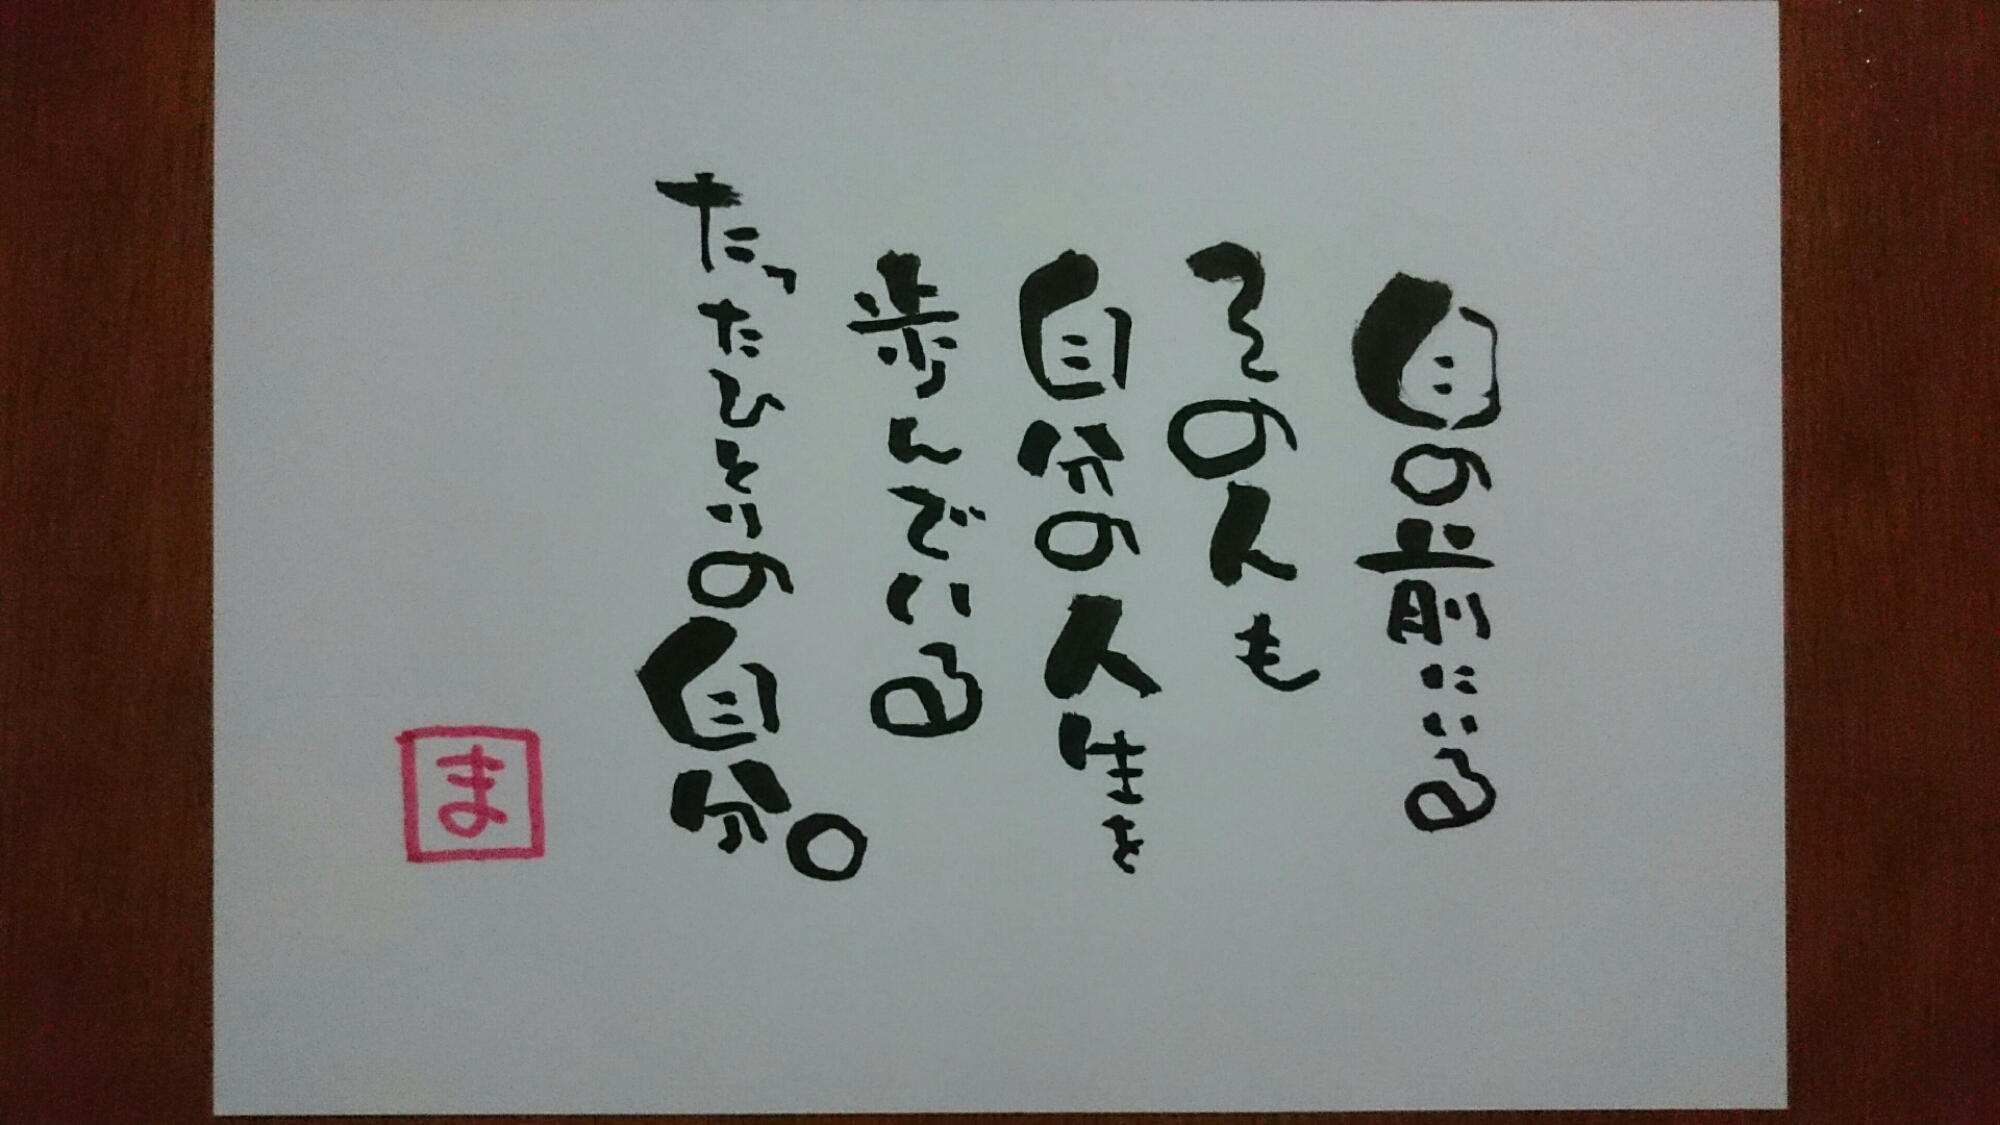 目の前にいる
その人も
自分の人生を
歩んでいる
たったひとりの自分。
ま